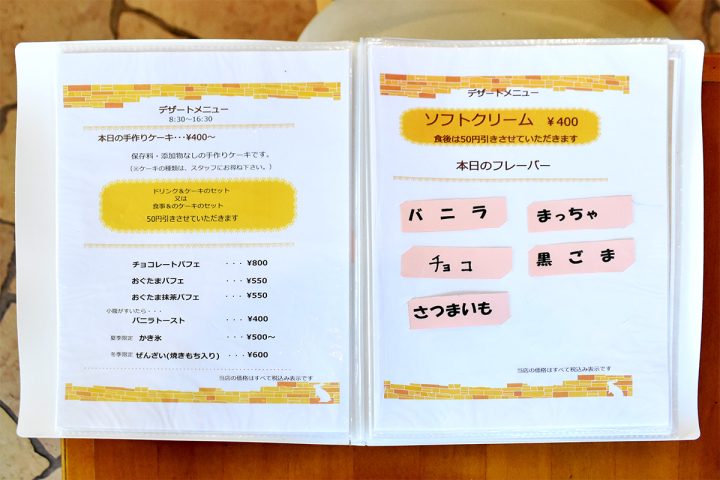 デザートメニュー
8:30〜16:30
本日の手作りケーキ･･･¥400〜
保存料・添加物なしの手作りケーキです。
(※ケーキの種類は、スタッフにお尋ね下さい。)
ドリンク&ケーキのセット
又は
食事&のケーキのセット
50円引きさせていただきます
チョコレートパフェ ･･･ ¥800
おぐたまパフェ ･･･ ¥550
おぐたま抹茶パフェ ･･･ ¥550
小腹がすいたら・・・
バニラトースト ･･･ ¥400
夏季限定 かき氷 ･･･ ¥500〜
冬季限定 ぜんざい(焼きもち入り) ･･･ ¥600
当店の価格はすべて税込み表示です
デザートメニュー
ソフトクリーム ¥400
食後は50円引きさせていただきます
本日のフレーバー
バニラ まっちゃ
チョコ 黒ごま
さつまいも
当店の価格はすべて税込み表示です